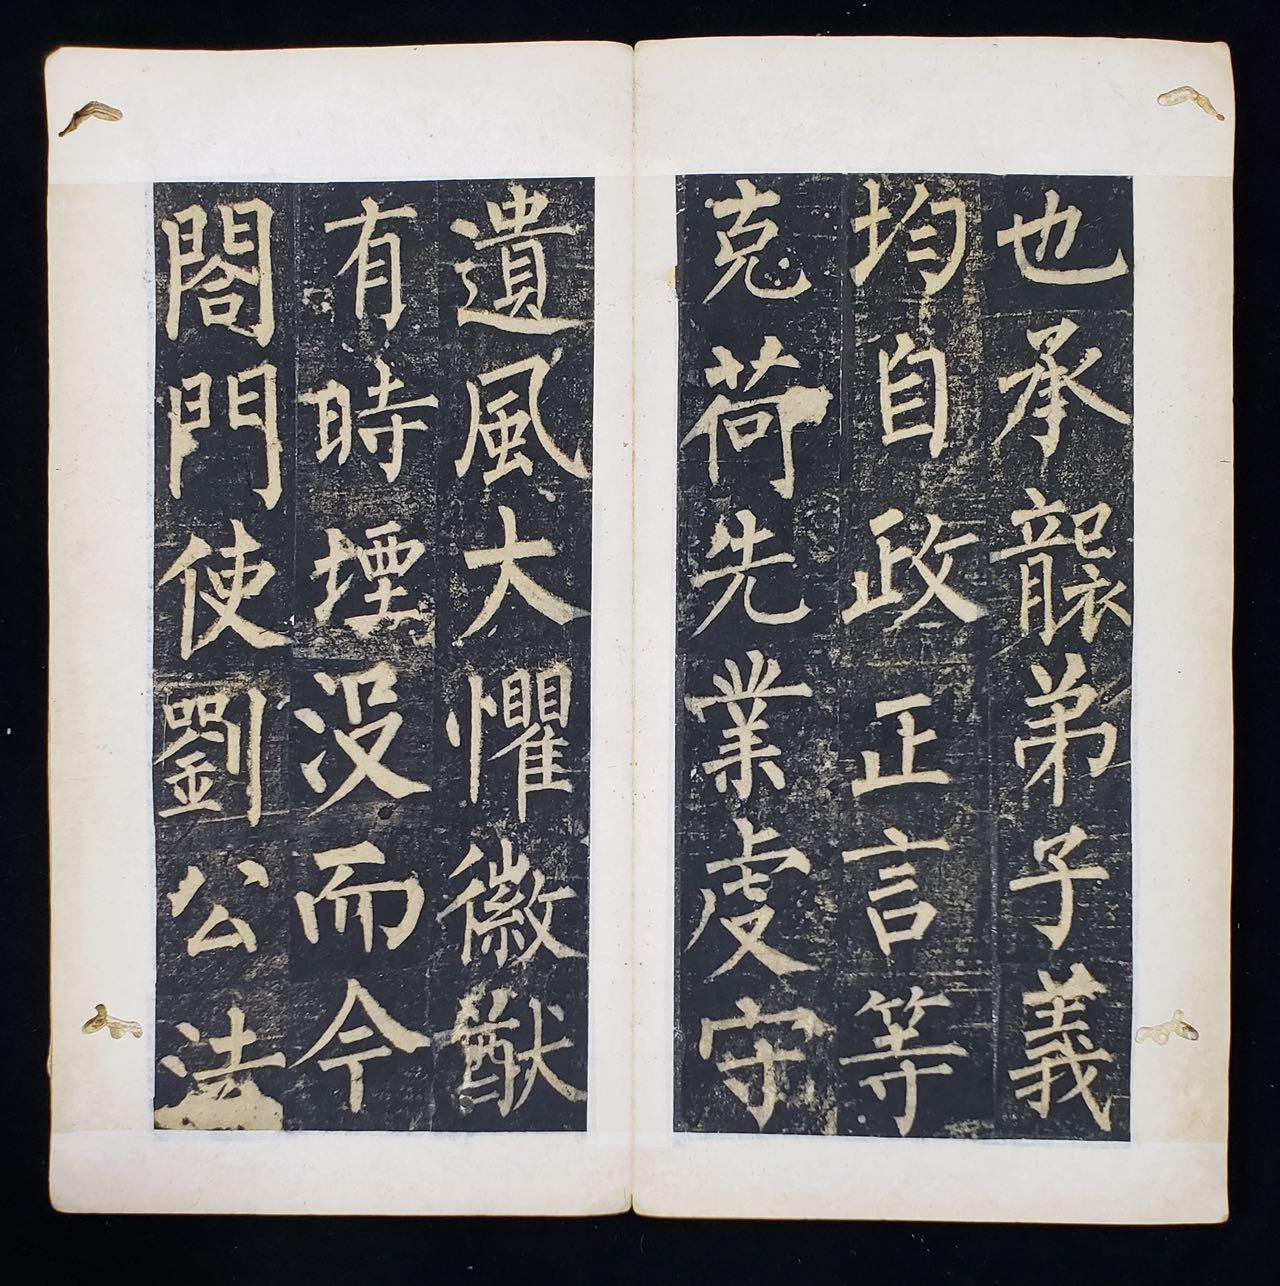 也承襲弟子義
均自政正言等
克荷先業虔守
遺風大懼徽猷
有時堙没而今
閤門使劉公法